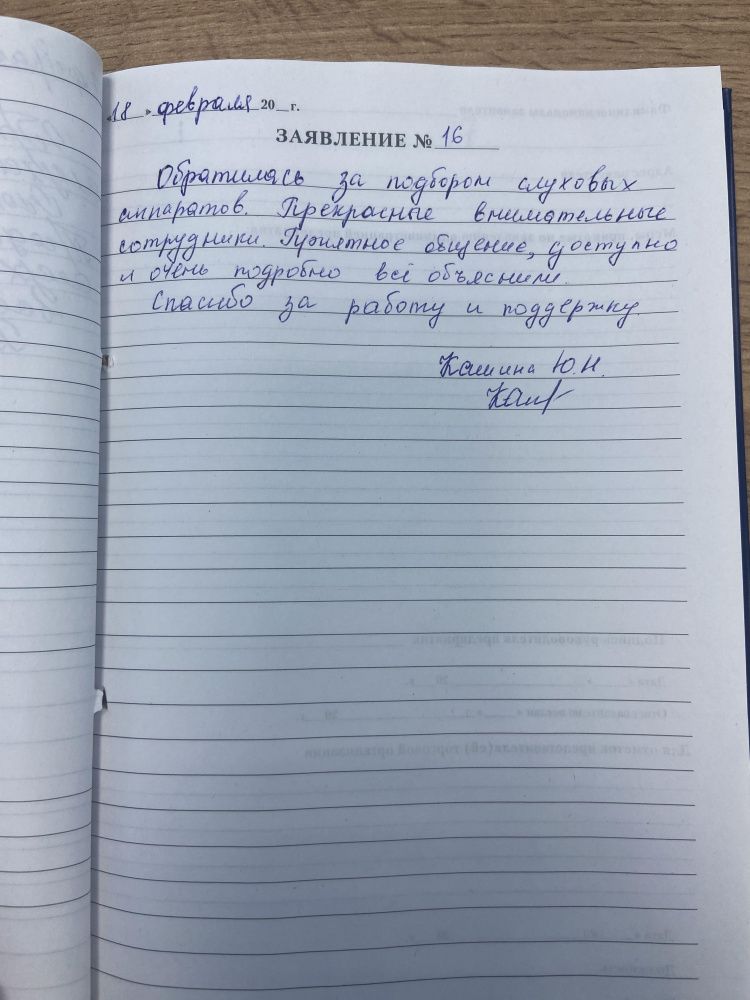 «18» февраля 20 г.
ЗАЯВЛЕНИЕ № 16
Обратилась за подбором слуховых
аппаратов. Прекрасные внимательные
сотрудники. Приятное общение, доступно
и очень подробно всё объяснили.
Спасибо за работу и поддержку.
Кашина Ю.Н.